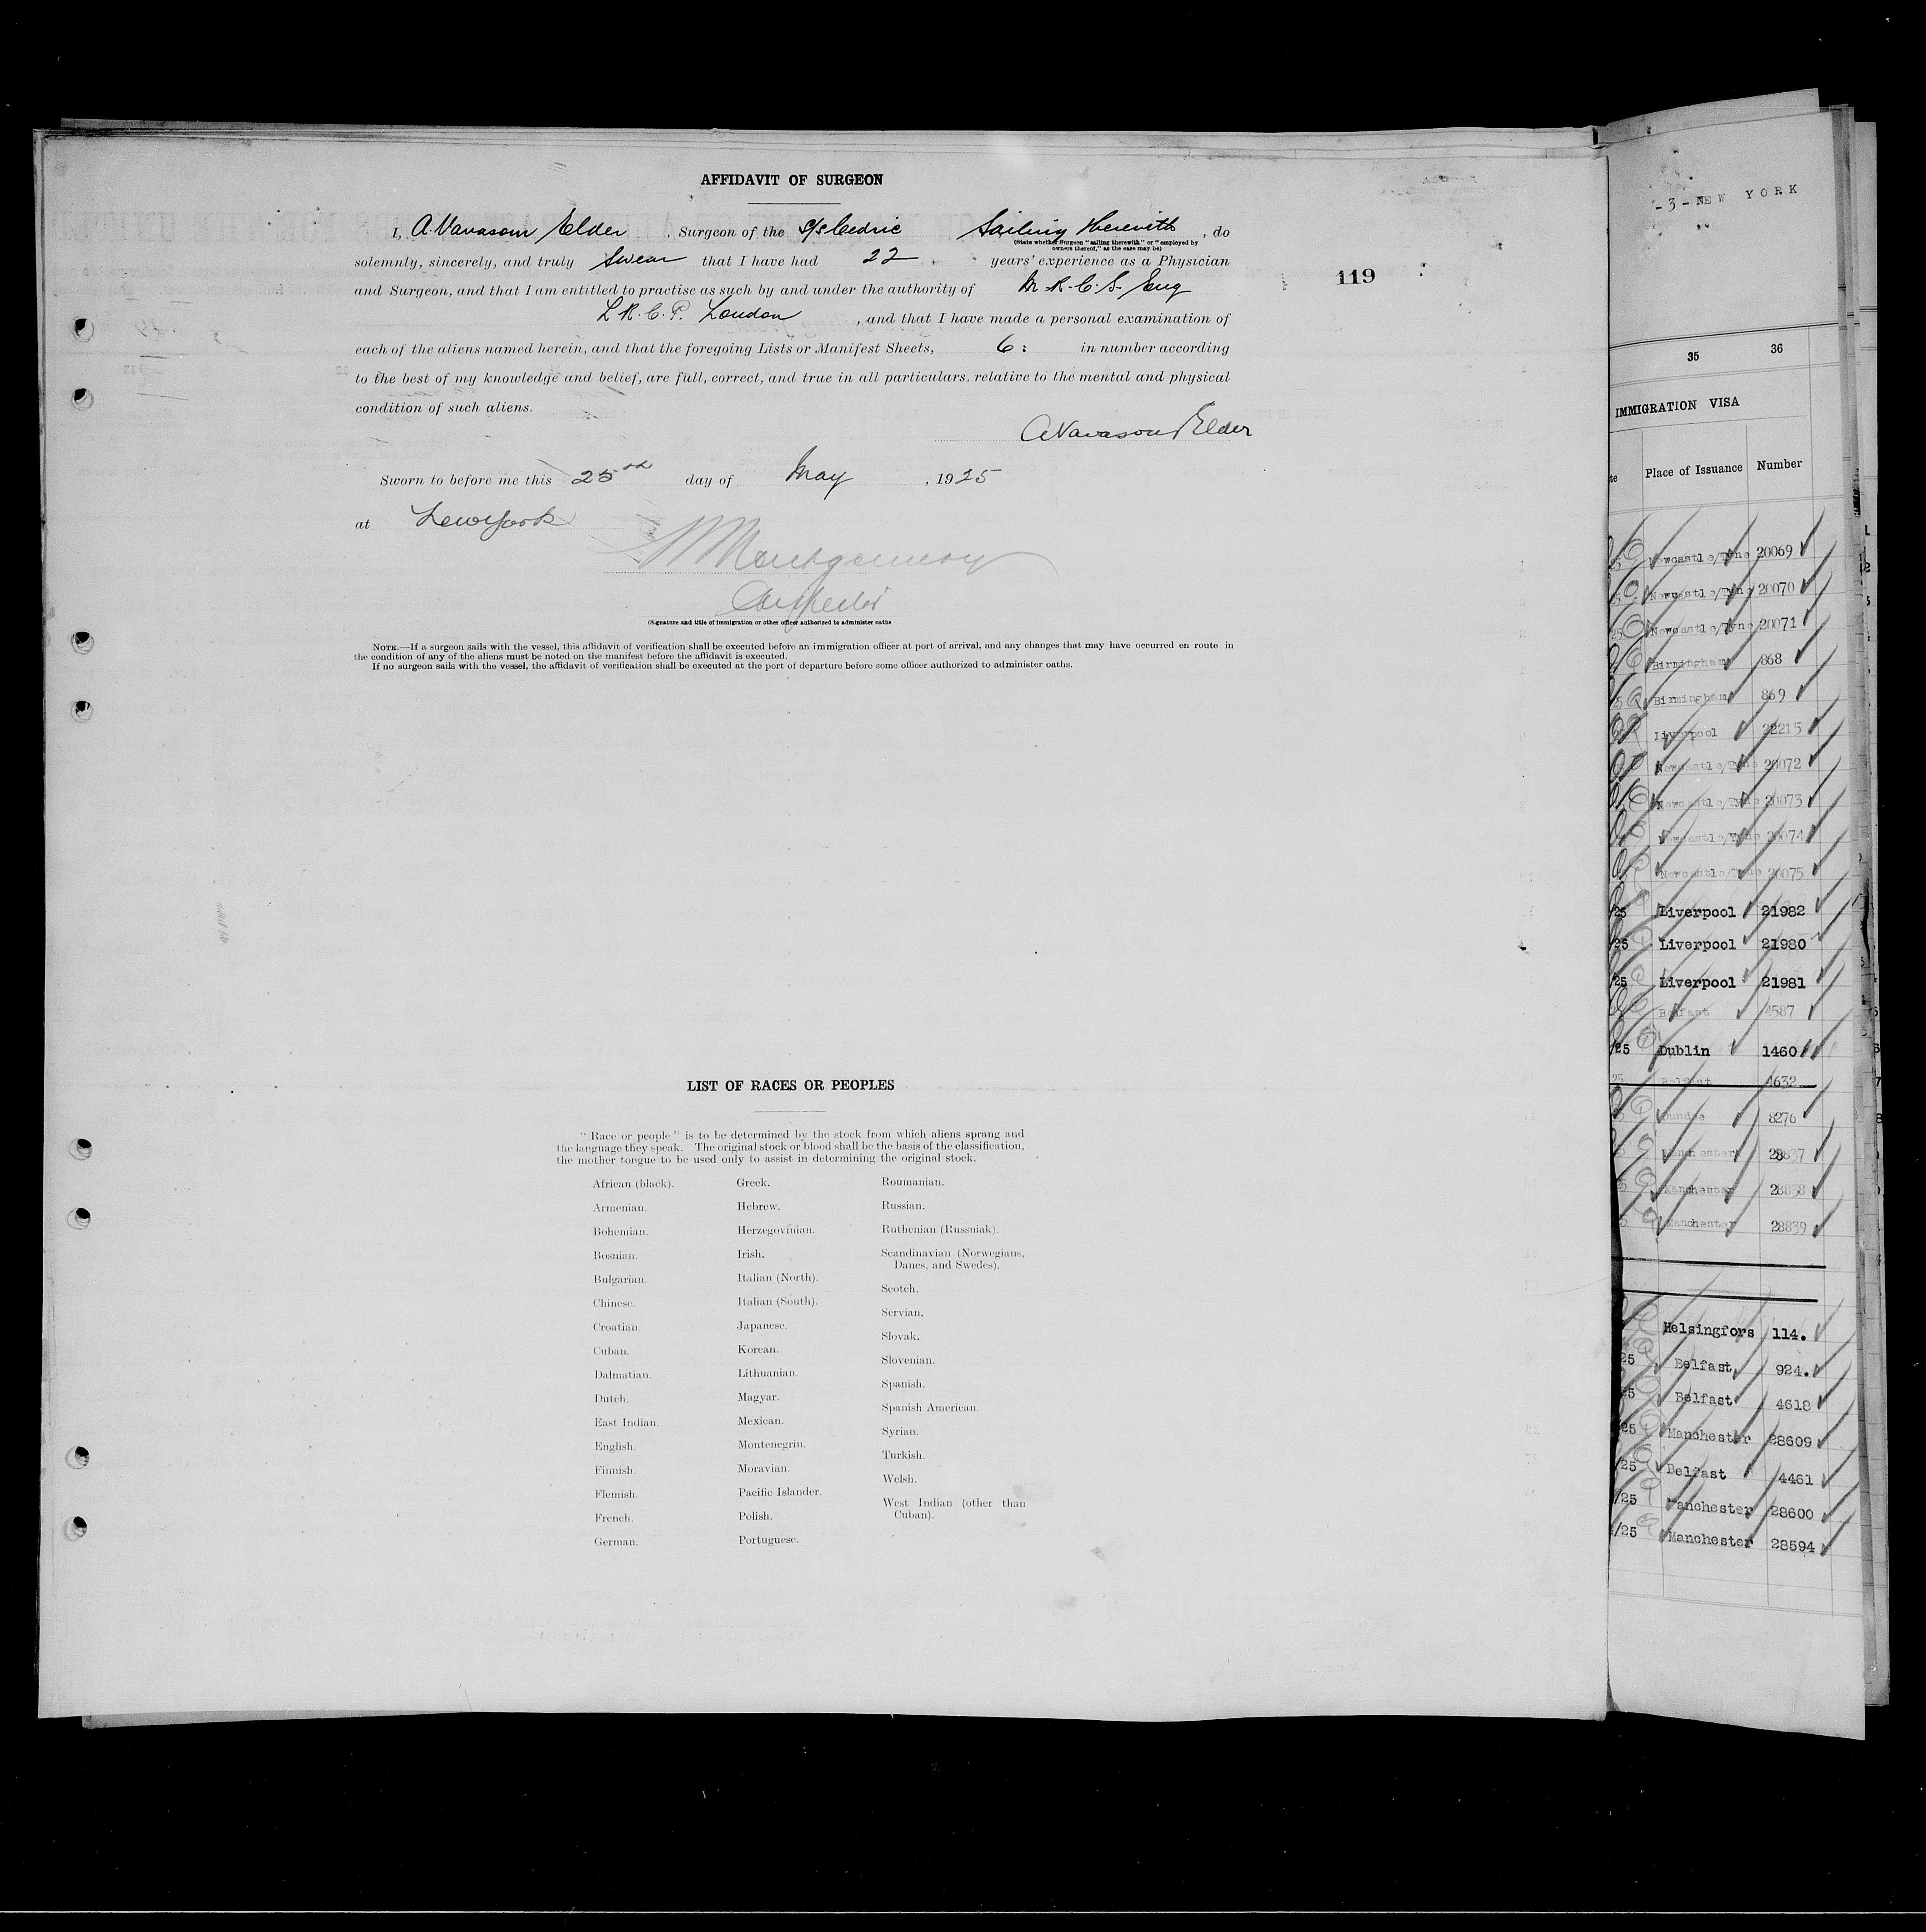 AFFIDAVIT OF SURGEON
I, A. Vavasour Elder, Surgeon of the S/S Cedric Sailing Therewith, do
(State whether Surgeon "sailing therewith" or "employed by
owners thereof," as the case may be)
solemnly, sincerely, and truly Swear that I have had 22 years' experience as a Physician
and Surgeon, and that I am entitled to practise as such by and under the authority of M.R.C.S. Eng
L.R.C.P. London, and that I have made a personal examination of
each of the aliens named herein, and that the foregoing Lists or Manifest Sheets, 6: in number according
to the best of my knowledge and belief, are full, correct, and true in all particulars. relative to the mental and physical
condition of such aliens.
A Vavasour Elder
Sworn to before me this 25th day of May, 1925
at New York
Montgomery
(Signature and title of immigration or other officer authorized to administer oaths
NOTE.—If a surgeon sails with the vessel, this affidavit of verification shall be executed before an immigration officer at port of arrival, and any changes that may have occurred en route in
the condition of any of the aliens must be noted on the manifest before the affidavit is executed.
If no surgeon sails with the vessel, the affidavit of verification shall be executed at the port of departure before some officer authorized to administer oaths.
119
LIST OF RACES OR PEOPLES
"Race or people" is to be determined by the stock from which aliens sprang and
the language they speak. The original stock or blood shall be the basis of the classification,
the mother tongue to be used only to assist in determining the original stock.
African (black).
Armenian.
Bohemian.
Bosnian.
Bulgarian.
Chinese.
Croatian.
Cuban.
Dalmatian.
Dutch.
East Indian.
English.
Finnish.
Flemish.
French.
German.
Greek.
Hebrew.
Herzegovinian.
Irish.
Italian (North).
Italian (South).
Japanese.
Korean.
Lithuanian.
Magyar.
Mexican.
Montenegrin.
Moravian.
Pacific Islander.
Polish.
Portuguese.
Roumanian.
Russian.
Ruthenian (Russniak).
Scandinavian (Norwegians,
Danes, and Swedes).
Scotch.
Servian.
Slovak.
Slovenian.
Spanish.
Spanish American.
Syrian.
Turkish.
Welsh.
West Indian (other than
Cuban).
-3-NEW YORK
35 36
IMMIGRATION VISA
te Place of Issuance Number
Newcastle/Tyne 20069
Newcastle/Tyne 20070
25 Newcastle/Tyne 20071
Birmingham 868
25 Birmingham 869
Liverpool 22215
Newcastle/Tyne 20072
Newcastle/Tyne 20073
Newcastle/Tyne 20074
Newcastle/Tyne 20075
/25 Liverpool 21982
/25 Liverpool 21980
/25 Liverpool 21981
Belfast 4587
/25 Dublin 1460
25 Belfast 4632
Dundee 8276
Manchester 28837
25 Manchester 28838
Manchester 28839
Helsingfors 114.
25 Belfast 924.
25 Belfast 4618
/25 Manchester 28609
/25 Belfast 4461
/25 Manchester 28600
/25 Manchester 28594